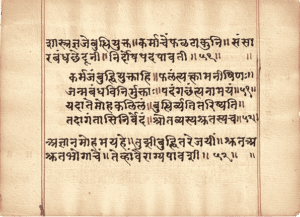 शास्त्रज्ञजेबुद्धियुक्त। कर्माचेंफळटाकुनि। संसा
रबंधछेदूनी। निर्दोषपदपावती॥५१॥
कर्मजंबुद्धियुक्ताहि। फलंत्यक्त्वामनीषिणः
जन्मबंधविनिर्मुक्ताः। पदंगछंत्यनामयं॥५१
यदातेमोहकलिलं। बुद्धिर्व्यतितरिष्यति
तदागंतासिनिर्वेदं। श्रोतव्यस्यश्रुतस्यच॥
अज्ञानमोहमयहें। तुझीबुद्धि
श्रुतभोगाचें। तेव्हांवैराग्यपावसी॥५२॥